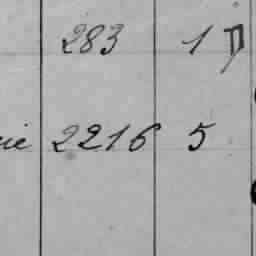 283 1
ие 2216 5